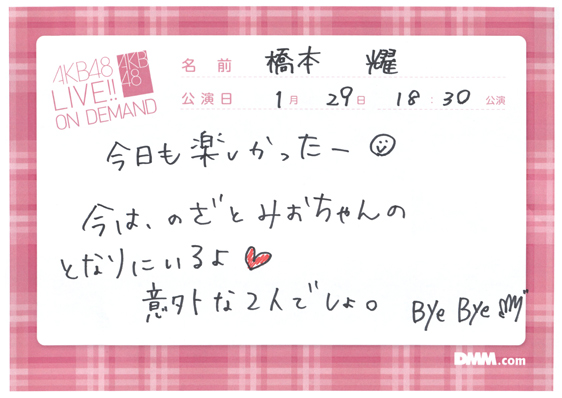 AKB48
LIVE!!
ON DEMAND
AKB
48
名前 橋本 耀
公演日 1月 29日 18:30 公演
今日も楽しかったー
今は、のざとみおちゃんの
となりにいるよ
意外な2人でしょ。 Bye Bye
DMM.com